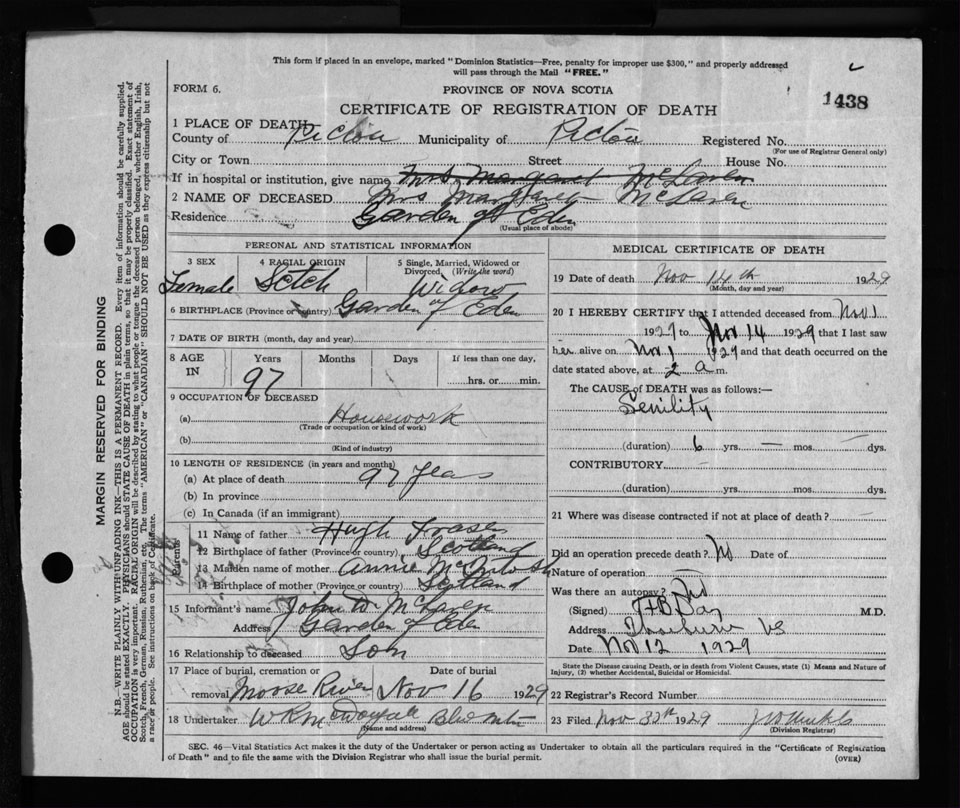 This form if placed in an envelope, marked "Dominion Statistics—Free, penalty for improper use $300," and properly addressed
will pass through the Mail "FREE."
FORM 6.
PROVINCE OF NOVA SCOTIA
1438
CERTIFICATE OF REGISTRATION OF DEATH
1 PLACE OF DEATH
County of Pictou Municipality of Pictou Registered No.
(For use of Registrar General only)
City or Town Street House No.
If in hospital or institution, give name Mrs Margaret McLaren
2 NAME OF DECEASED Mrs Margaret McLaren
Residence Garden of Eden
(Usual place of abode)
PERSONAL AND STATISTICAL INFORMATION
3 SEX 4 RACIAL ORIGIN 5 Single, Married, Widowed or
Divorced, (Write the word)
Female Scotch Widow
6 BIRTHPLACE (Province or country) Garden of Eden
7 DATE OF BIRTH (month, day and year)
8 AGE IN Years Months Days If less than one day,
97 hrs. or min.
9 OCCUPATION OF DECEASED
(a) Housework
(Trade or occupation or kind of work)
(b)
(Kind of industry)
10 LENGTH OF RESIDENCE (in years and months)
(a) At place of death 97 Years
(b) In province
(c) In Canada (if an immigrant)
Parents
11 Name of father Hugh Fraser
12 Birthplace of father (Province or country) Scotland
13 Maiden name of mother Annie McIntosh
14 Birthplace of mother (Province or country) Scotland
15 Informant's name John W McLaren
Address Garden of Eden
16 Relationship to deceased Son
17 Place of burial, cremation or Date of burial
removal Moose River Nov 16 1929
18 Undertaker W R Blue Mtn
(Name and address)
MEDICAL CERTIFICATE OF DEATH
19 Date of death Nov 14th 1929
(Month, day and year)
20 I HEREBY CERTIFY that I attended deceased from Nov 1
1929 to Nov 14 1929 that I last saw
her alive on Nov 1 1929 and that death occurred on
date stated above, at 2 a m.
The CAUSE of DEATH was as follows:—
Senility
(duration) 6 yrs. — mos. — dys.
CONTRIBUTORY —
(duration) yrs. mos. dys.
21 Where was disease contracted if not at place of death? —
Did an operation precede death? No Date of
Nature of operation
Was there an autopsy? No
(Signed) H B Day M.D.
Address Thorburn NS
Date Nov 12 1929
State the Disease causing Death, or in death from Violent Causes, state (1) Means and Nature of
Injury, (2) whether Accidental, Suicidal or Homicidal.
22 Registrar's Record Number
23 Filed Nov 1929
(Division Registrar)
SEC. 46—Vital Statistics Act makes it the duty of the Undertaker or person acting as Undertaker to obtain all the particulars required in the "Certificate of Registration
of Death" and to file the same with the Division Registrar who shall issue the burial permit. (OVER)
MARGIN RESERVED FOR BINDING
N.B. WRITE PLAINLY WITH UNFADING INK—THIS IS A PERMANENT RECORD. Every item of information should be carefully supplied.
AGE should be stated EXACTLY. PHYSICIANS should STATE CAUSE OF DEATH in plain terms, so that it may be properly classified. Exact statement of
OCCUPATION is very important. RACIAL ORIGIN will be described by stating to what people or tongue the deceased person belonged, whether English, Irish,
Scotch, French, German, Russian, Ruthenian, etc. The terms "AMERICAN" or "CANADIAN" SHOULD NOT BE USED as they express citizenship but not
a race or people. See instructions on back of Certificate.